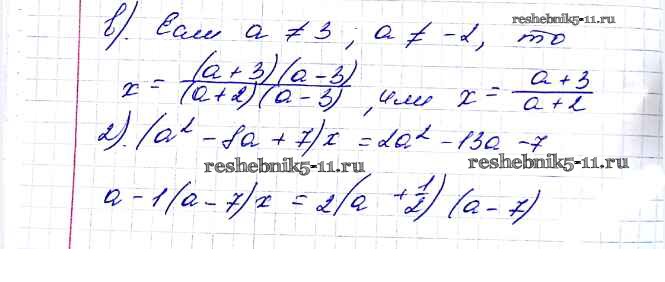 в). Если a ≠ 3; a ≠ -2, то
reshebnik5-11.ru
x = (a + 3)(a - 3) / (a + 2)(a - 3), или x = a + 3 / a + 2
2). (a² - 8a + 7)x = 2a² - 13a - 7
reshebnik5-11.ru reshebnik5-11.ru
a - 1(a - 7)x = 2(a + 1/2)(a - 7)